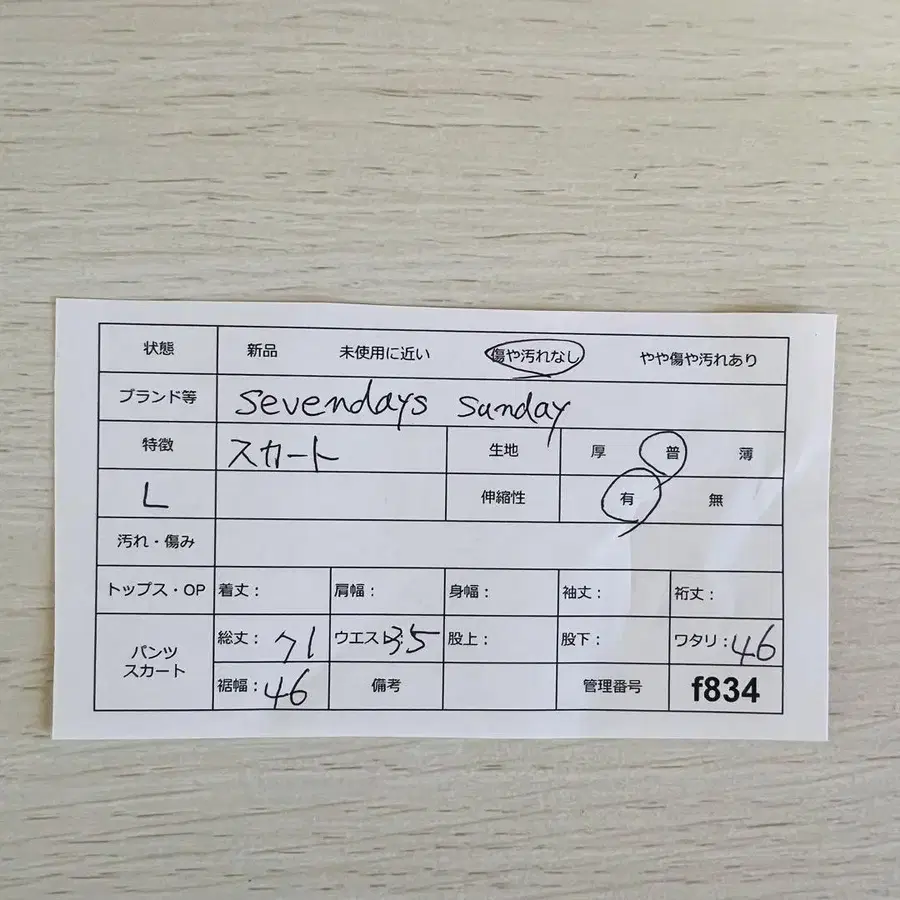 状態 新品 未使用に近い 傷や汚れなし やや傷や汚れあり
ブランド等 sevendays sunday
特徴 スカート 生地 厚 普 薄
L 伸縮性 有 無
汚れ・傷み
トップス・OP 着丈: 肩幅: 身幅: 袖丈: 裄丈:
パンツ スカート 総丈: 71 ウエスト: 35 股上: 股下: ワタリ: 46
裾幅: 46 備考 管理番号 f834